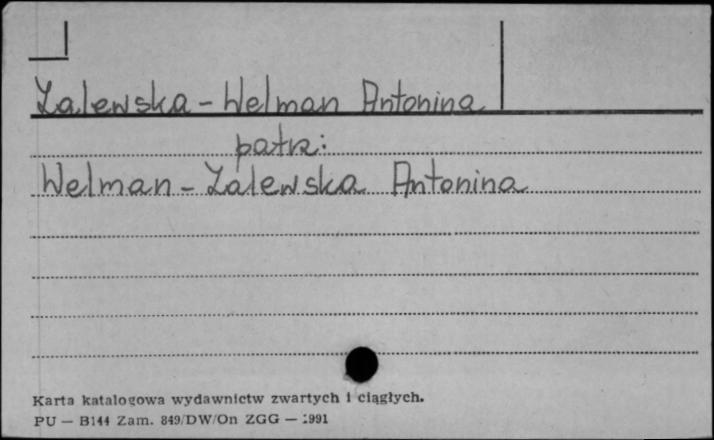 Zalewska-Welman Antonina
patrz:
Welman-Zalewska Antonina
Karta katalogowa wydawnictw zwartych i ciągłych.
PU — B144 Zam. 849/DW/On ZGG — 1991